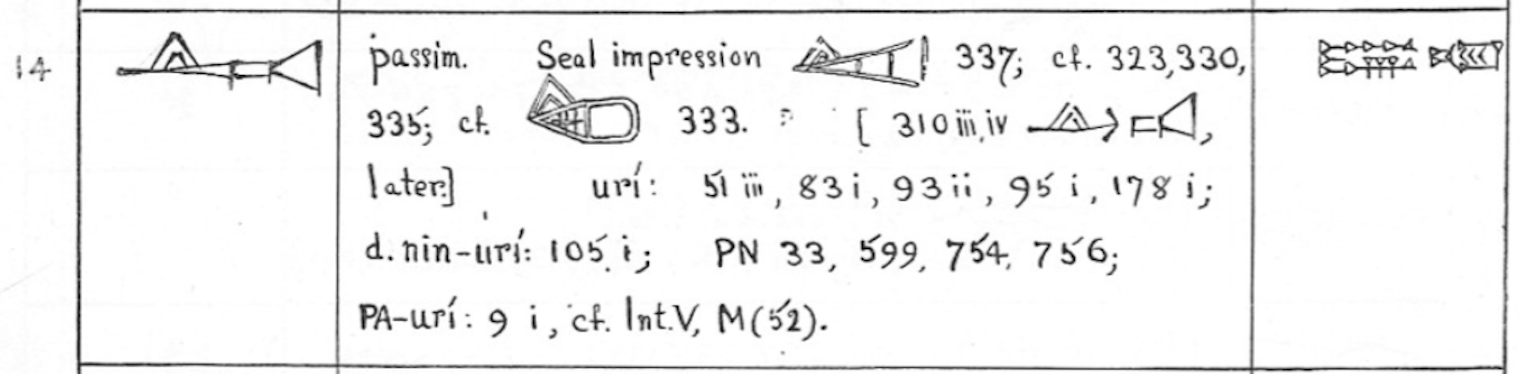 14 passim. Seal impression 337; cf. 323,330,
335; cf. 333. [ 310 iii, iv ,
later.] urí: 51 iii, 83 i, 93 ii, 95 i, 178 i;
d.nin-urí: 105 i; PN 33, 599, 754, 756;
PA-urí: 9 i, cf. Int.V, M(52).